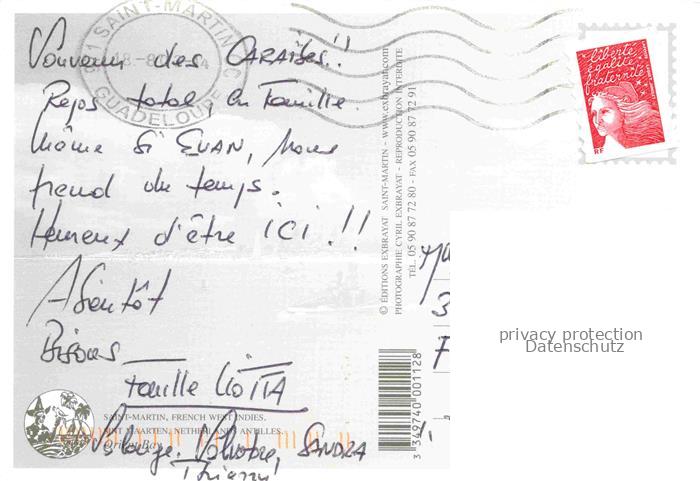 SAINT-MARTIN
GUADELOUPE
liberté
égalité
fraternité
RF
Souvenir des CARAÏBES!!
Repos total, en Famille.
Même Si EVAN, Nous
prend du temps.
Heureux d'être ICI!!
A Bientôt
Bisous
famille
SANDRA
Thierry
© ÉDITIONS EXBRAYAT SAINT-MARTIN - www.exbrayat.com
PHOTOGRAPHIE CYRIL EXBRAYAT - REPRODUCTION INTERDITE
TÉL. 05 90 87 72 80 - FAX 05 90 87 72 91
3 349740 001128
SAINT-MARTIN, FRENCH WEST INDIES.
SINT MAARTEN, NETHERLANDS ANTILLES.
Orient Bay
privacy protection
Datenschutz